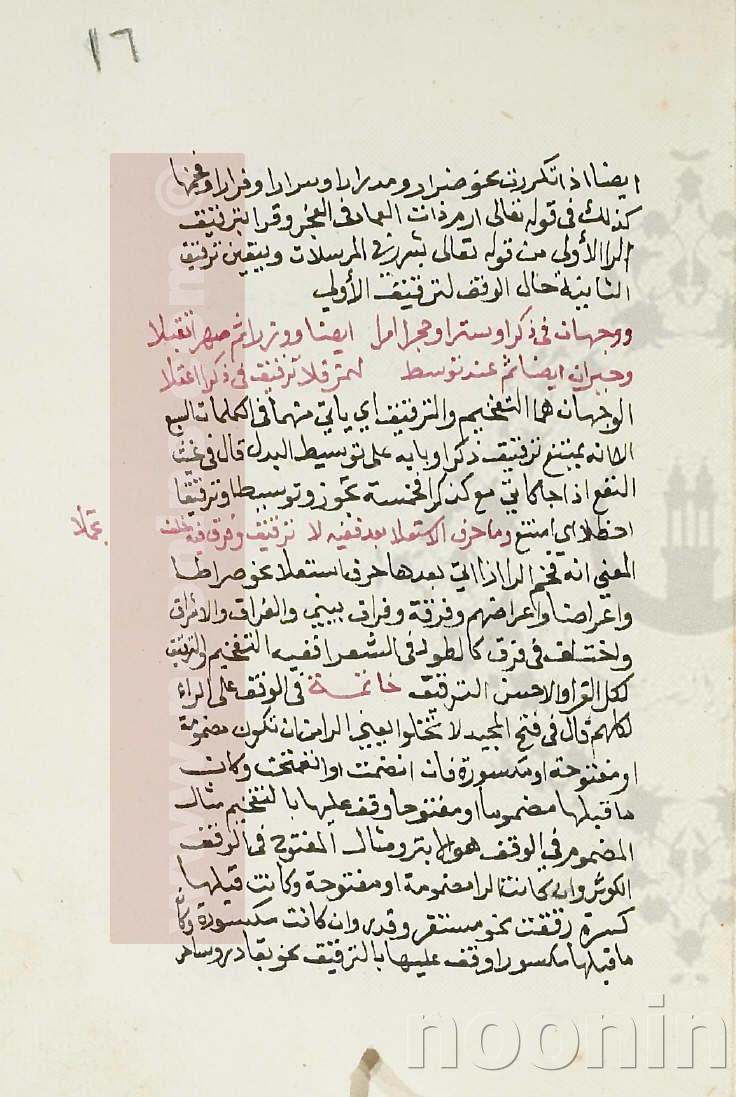 ١٦
ايضا اذا تكررت نحو ضرارا ومدرارا واسرارا وفرارا وفخمها
كذلك في قوله تعالى ارم ذات العماد في الفجر وقرا بترقيق
الرا الأولى من قوله تعالى بشرر في المرسلات ويتعين ترقيق
الثانية حال الوقف لترقيق الأولى
ووجهان في ذكرا وسترا وحجرا امر ايضا ووزرا ثم صهرا تقبلا
وحيران ايضا ثم عند توسط لهمز فلا ترقيق في ذكرا اعقلا
الوجهان هما التفخيم والترقيق اي ياتي منهما في الكلمات السبع
الا انه يمتنع ترقيق ذكرا وبابه على توسيط البدل قال في غيث
النفع اذا جا كاتي مع كذكرا فخمسة تجوز وتوسيطا وترقيقا
احظلا اي امنع وما حرف الاستعلا بعد ففيه لا ترقيق وفرق فيه خلف
تحملا
المعني انه فخم الرا اذا اتى بعدها حرف استعلا نحو صراط
واعراضا واعراضهم وفرقة وفراق بيني والفراق والاشراق
واختلف في فرق كالطود في الشعرا ففيه التفخيم والترقيق
لكل القرا والاحسن الترقيق خاتمة في الوقف على الراء
لكلهم قال في فتح المجيد لا تخلوا يعني الرا من ان تكون مضمومة
او مفتوحة او مكسورة فان انضمت او انفتحت وكان
ما قبلها مضموما او مفتوحا وقف عليها بالتفخيم مثال
المضموم في الوقف هو الابتر ومثال المفتوح في الوقف
الكوثر وان كانت الرا مضمومة او مفتوحة وكانت قبلها
كسرة رققت نحو مستقر وقدر وان كانت مكسورة وكان
ما قبلها مكسورا وقف عليها بالترقيق نحو بقادر وساحر
noonin